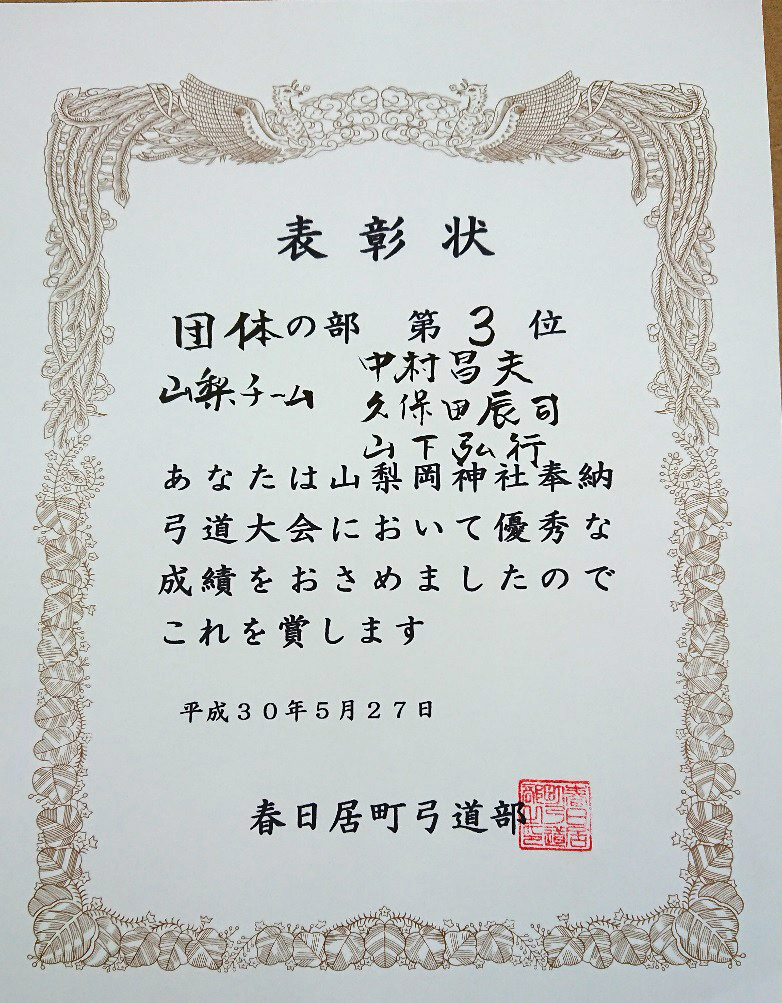 表彰状
団体の部 第3位
山梨チーム
中村昌夫
久保田辰司
山下弘行
あなたは山梨岡神社奉納
弓道大会において優秀な
成績をおさめましたので
これを賞します
平成30年5月27日
春日居町弓道部
春日居
町弓道
部之印